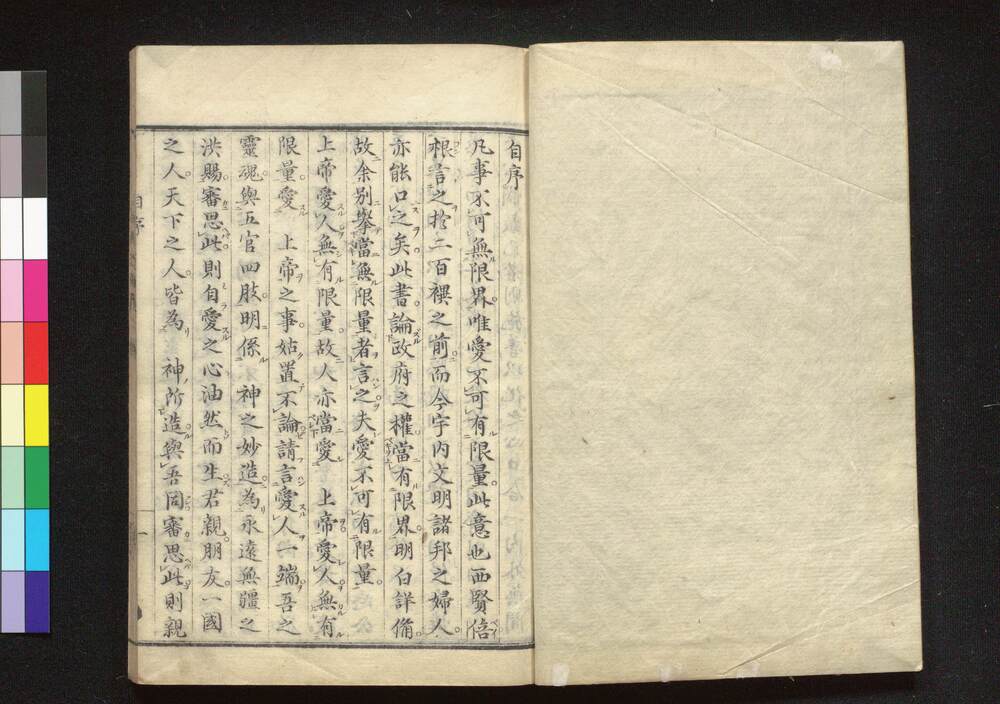 自序
凡事不可無限界唯愛不可有限量此意也西賢倍
根言之於二百禩之前而今宇内文明諸邦之婦人
亦能口之矣此書論政府之權當有限界明白詳備
故余別擧當無限量者言之夫愛不可有限量
上帝愛人無有限量故人亦當愛 上帝愛人無有
限量愛 上帝之事姑置不論請言愛人一端吾之
靈魂與五官四肢明係 神之妙造為永遠無疆之
洪賜審思此則自愛之心油然而生君親朋友一國
之人天下之人皆為 神所造與吾同審思此則親
自序
一